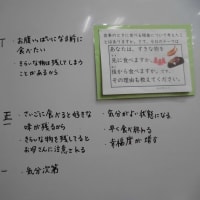 丅 ・お腹いっぱいになる前に
食べたい
・きらいな物は残してしまう
ことがあるから
あなたは、すきな物を
先に食べますか、
後から食べますか。
その理由も教えてください。
正一 ・さいごに食べると好きな
味が残るから
・きらいな物を残してると
お母さんに注意される
・気分が良い状態になる
・早く食べ終わる
・幸福度が増す
一 ・気分次第